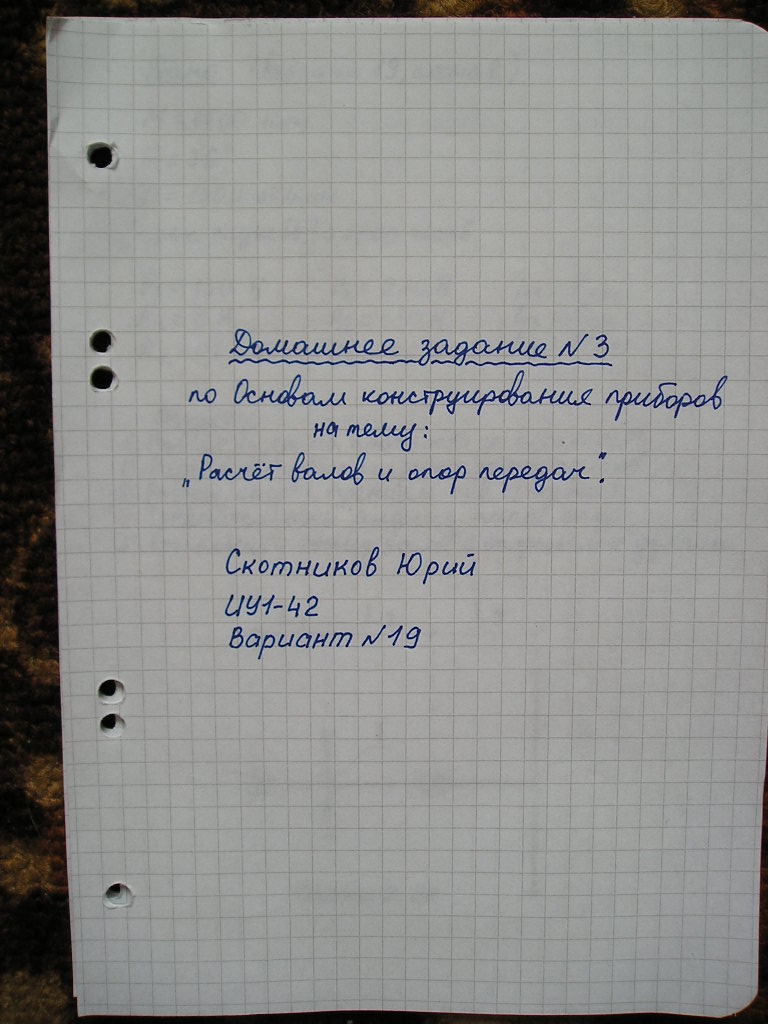 Домашнее задание N 3
по Основам конструирования приборов
на тему:
„Расчёт валов и опор передач".
Скотников Юрий
ИУ1-42
Вариант N19